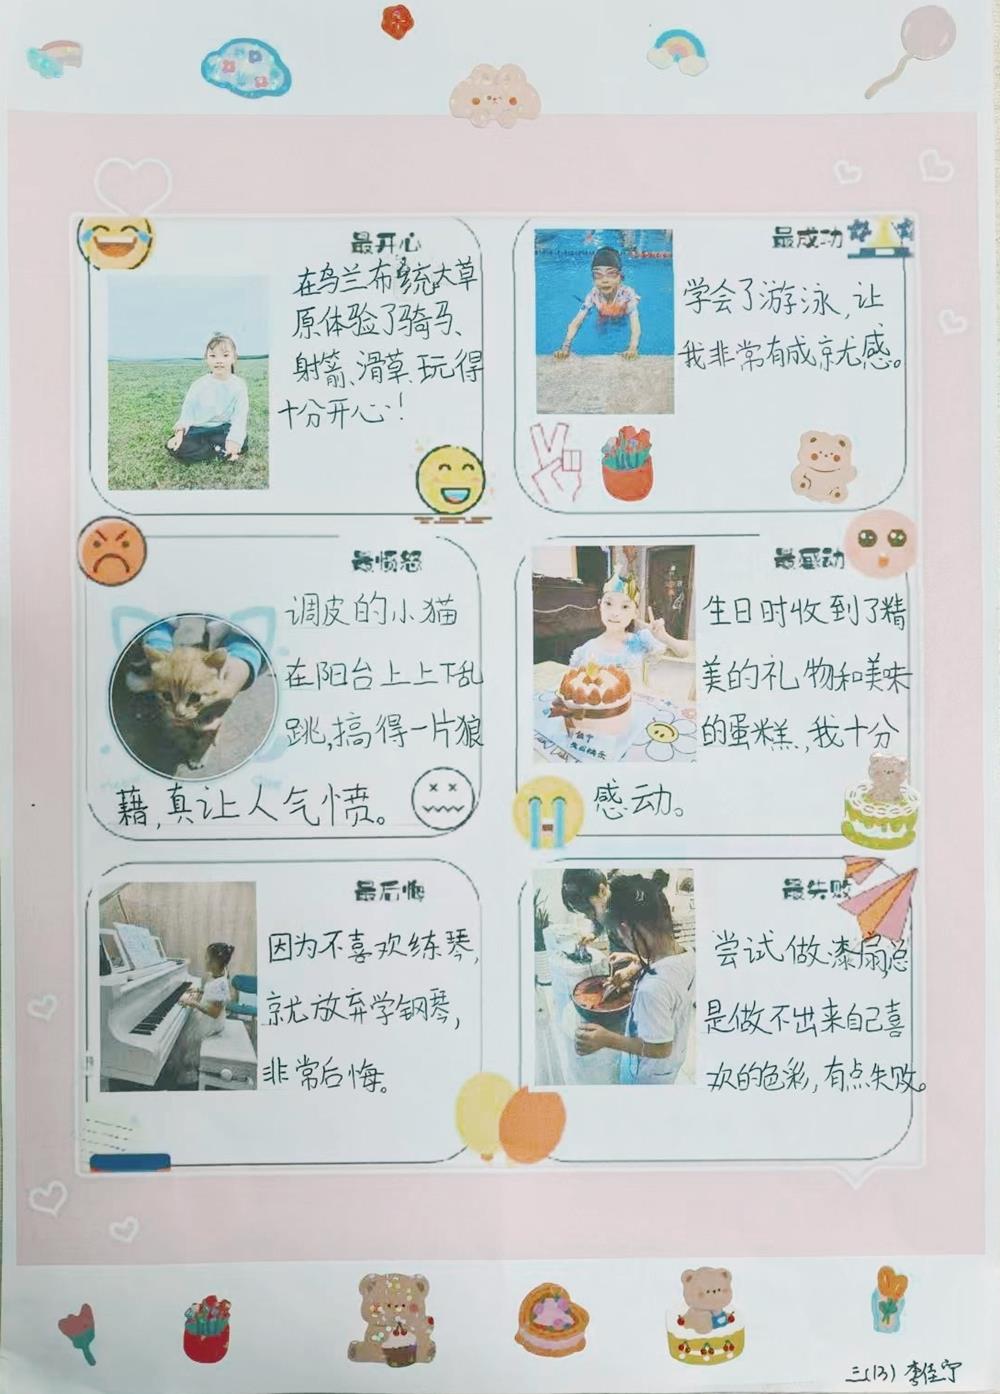 最开心
在乌兰布统大草
原体验了骑马、
射箭、滑草、玩得
十分开心！
最成功
学会了游泳，让
我非常有成就感。
最愤怒
调皮的小猫
在阳台上上下乱
跳，搞得一片狼
藉，真让人气愤。
最感动
生日时收到了精
美的礼物和美味
的蛋糕，我十分
感动。
生日快乐
最后悔
因为不喜欢练琴，
就放弃学钢琴，
非常后悔。
最失败
尝试做漆扇总
是做不出来自己喜
欢的色彩，有点失败。
三(13) 李佳宁